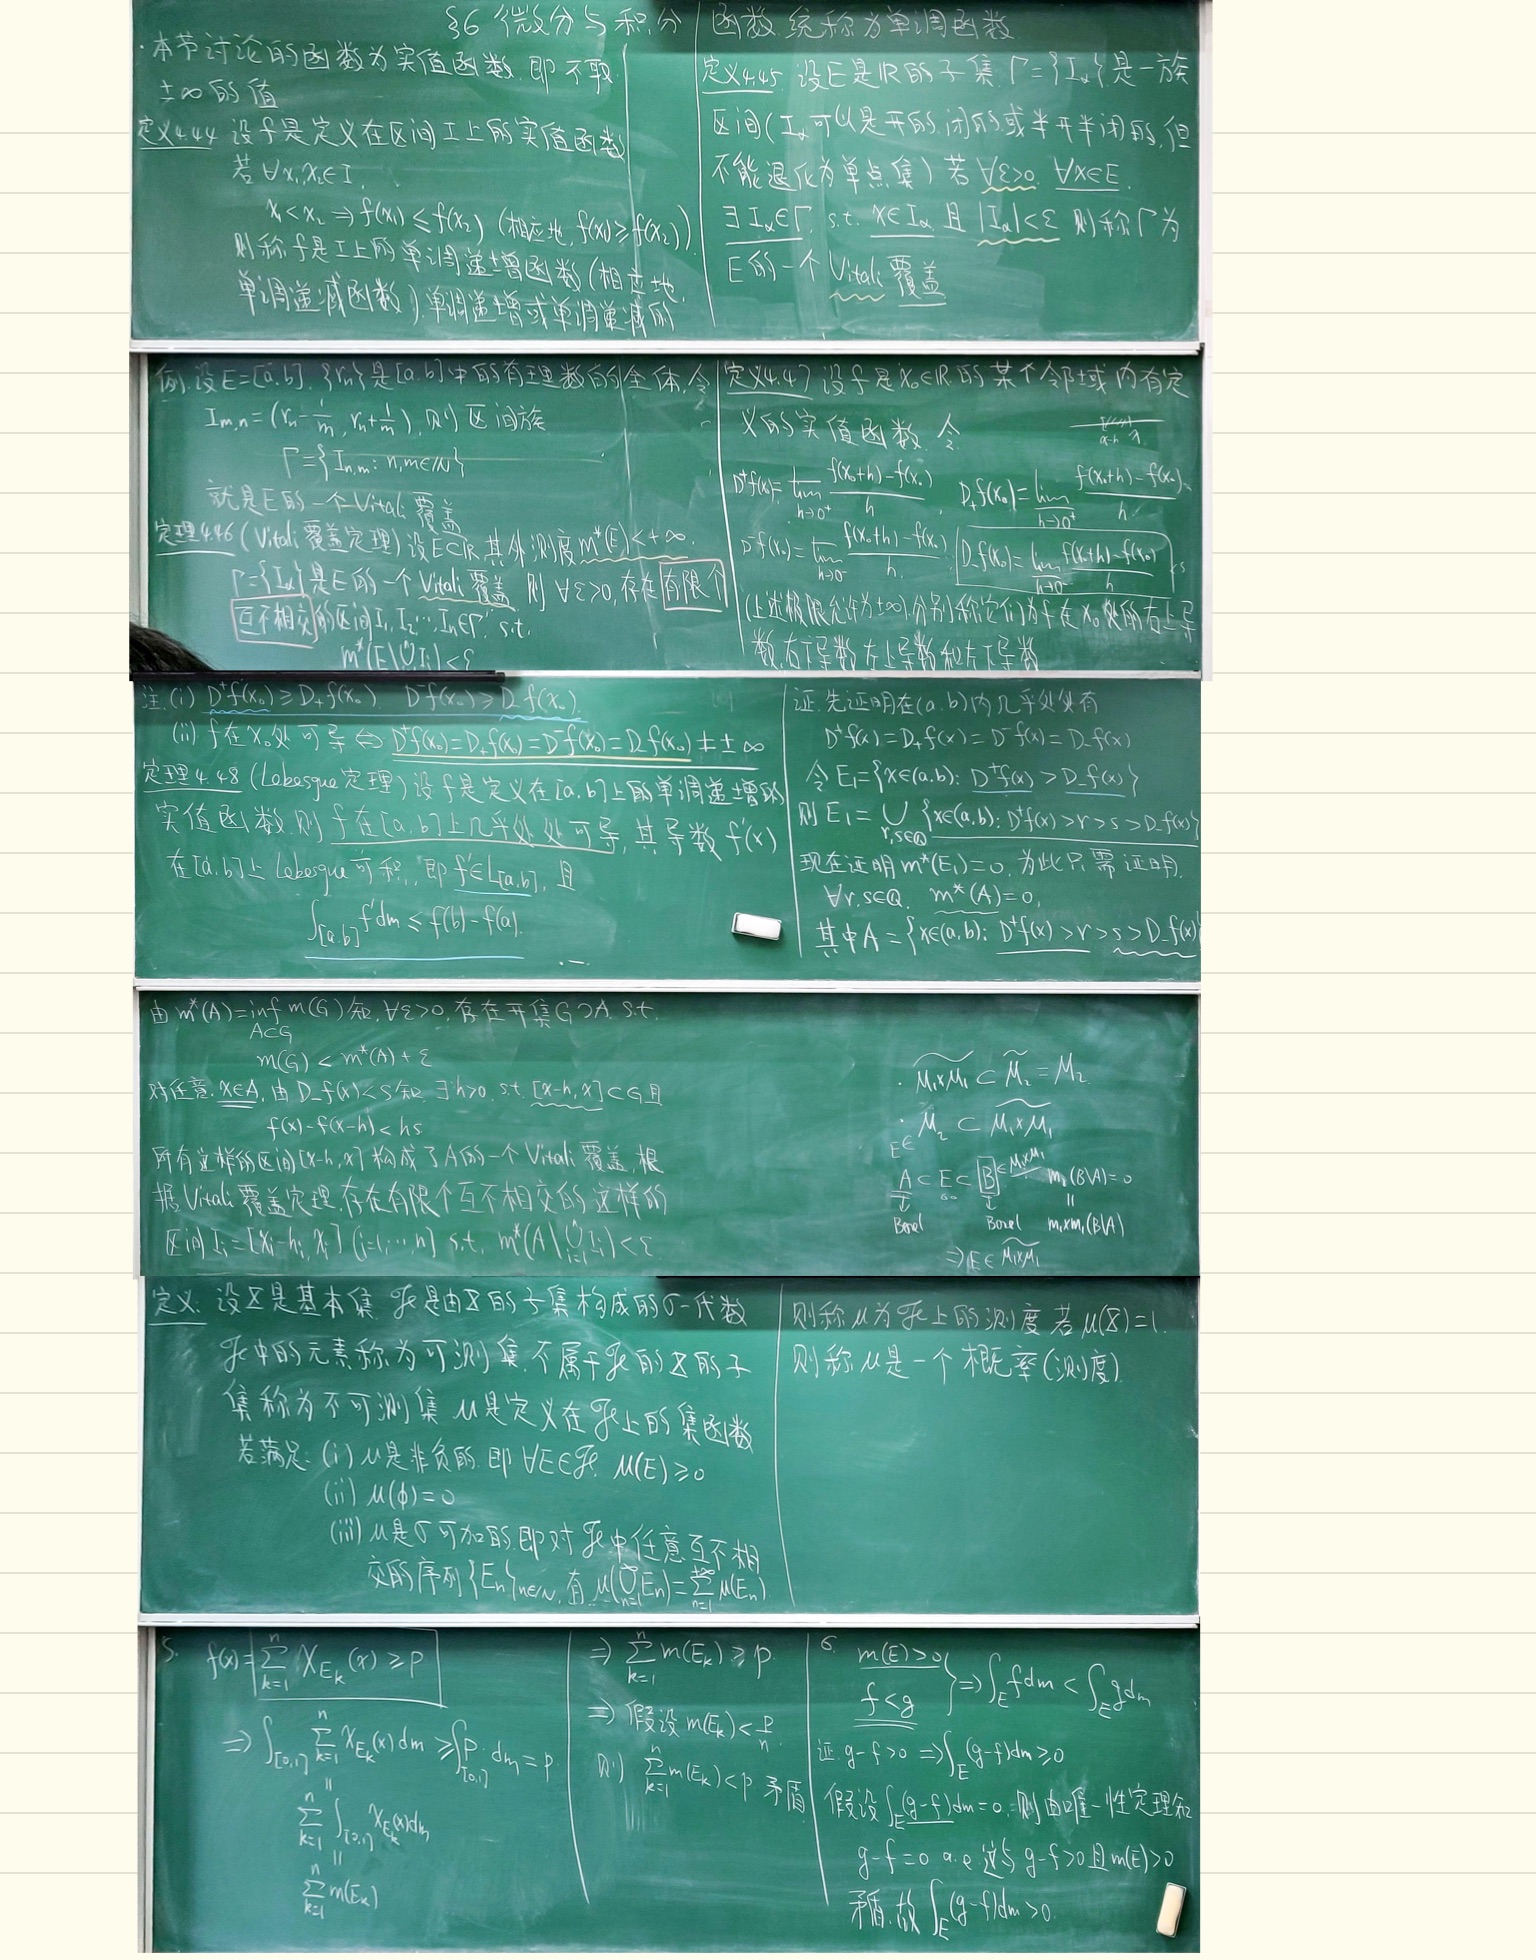 §6 微分与积分
·本节讨论的函数为实值函数,即不取
±∞的值
定义4.44 设f是定义在区间I上的实值函数
若∀x₁,x₂∈I,
x₁<x₂ ⇒ f(x₁)≤f(x₂) (相应地, f(x₁)≥f(x₂))
则称f是I上的单调递增函数(相应地,
单调递减函数).单调递增或单调递减的
函数统称为单调函数
定义4.45 设E是ℝ的子集, Γ={I_α}是一族
区间(I_α可以是开的,闭的或半开半闭的,但
不能退化为单点集) 若∀ε>0, ∀x∈E,
∃I_α∈Γ, s.t. x∈I_α 且 |I_α|<ε 则称Γ为
E的一个Vitali覆盖
例.设E=[a,b], {rₙ}是[a,b]中的有理数的全体,令
I_{m,n}=(rₙ-1/m, rₙ+1/m), 则区间族
Γ={I_{n,m}: n,m∈ℕ}
就是E的一个Vitali覆盖
定理4.46 (Vitali覆盖定理) 设E⊂ℝ,其外测度m*(E)<+∞.
Γ={I_α}是E的一个Vitali覆盖 则∀ε>0,存在有限个
互不相交的区间I₁,I₂…,Iₙ∈Γ, s.t.
m*(E\⋃Iᵢ)<ε
定义4.47 设f是x₀∈ℝ的某个邻域内有定
义的实值函数,令
a-h x
D⁺f(x₀)=lim̄_{h→0⁺} (f(x₀+h)-f(x₀))/h, D₊f(x₀)=lim̲_{h→0⁺} (f(x₀+h)-f(x₀))/h.
D⁻f(x₀)=lim̄_{h→0⁻} (f(x₀+h)-f(x₀))/h, D₋f(x₀)=lim̲_{h→0⁻} (f(x₀+h)-f(x₀))/h <s
(上述极限允许为±∞)分别称它们为f在x₀处的右上导
数,右下导数,左上导数和左下导数
注.(i) D⁺f(x₀)≥D₊f(x₀). D⁻f(x₀)≥D₋f(x₀).
(ii) f在x₀处可导⇔D⁺f(x₀)=D₊f(x₀)=D⁻f(x₀)=D₋f(x₀)≠±∞
定理4.48 (Lebesgue定理) 设f是定义在[a,b]上的单调递增的
实值函数,则f在[a,b]上几乎处处可导,其导数f'(x)
在[a,b]上Lebesgue可积,即f'∈L[a,b], 且
∫_{[a,b]} f'dm ≤ f(b)-f(a).
证.先证明在(a,b)内几乎处处有
D⁺f(x)=D₊f(x)=D⁻f(x)=D₋f(x)
令E₁={x∈(a,b): D⁺f(x)>D₋f(x)}
则E₁=⋃_{r,s∈ℚ}{x∈(a,b): D⁺f(x)>r>s>D₋f(x)}
现在证明m*(E₁)=0,为此只需证明,
∀r,s∈ℚ, m*(A)=0,
其中A={x∈(a,b): D⁺f(x)>r>s>D₋f(x)}
由m*(A)=inf_{A⊂G} m(G)知,∀ε>0,存在开集G⊃A, s.t.
m(G)<m*(A)+ε
对任意x∈A,由D₋f(x)<s知,∃h>0, s.t. [x-h,x]⊂G且
f(x)-f(x-h)<hs
所有这样的区间[x-h,x]构成了A的一个Vitali覆盖,根
据Vitali覆盖定理,存在有限个互不相交的这样的
区间Iᵢ=[xᵢ-hᵢ,xᵢ] (i=1,…,n) s.t. m*(A\⋃_{i=1}^{n}Iᵢ)<ε
· \widetilde{M₁×M₁} ⊂ \widetilde{M₂} = M₂.
· \widetilde{M₂} ⊂ \widetilde{M₁×M₁}
E∈
A⊂E⊂B ∈M₁×M₁ m₂(B\A)=0
Borel Borel m₁×m₁(B\A)
⇒E∈\widetilde{M₁×M₁}
定义:设X是基本集,ℱ是由X的子集构成的σ-代数
ℱ中的元素称为可测集,不属于ℱ的X的子
集称为不可测集 μ是定义在ℱ上的集函数
若满足:(i) μ是非负的,即∀E∈ℱ, μ(E)≥0
(ii) μ(ϕ)=0
(iii) μ是σ可加的,即对ℱ中任意互不相
交的序列{Eₙ}_{n∈ℕ},有μ(⋃_{n=1}^{∞}Eₙ)=∑_{n=1}^{∞}μ(Eₙ)
则称μ为ℱ上的测度 若μ(X)=1.
则称μ是一个概率(测度).
5. f(x)=∑_{k=1}^{n} χ_{E_k}(x)≥p
⇒∫_{[0,1]} ∑_{k=1}^{n} χ_{E_k}(x)dm ≥∫_{[0,1]} p dm=p
॥
∑_{k=1}^{n}∫_{[0,1]} χ_{E_k}(x)dm
॥
∑_{k=1}^{n} m(E_k)
⇒ ∑_{k=1}^{n} m(E_k)≥p.
⇒ 假设m(E_k)<p/n
则 ∑_{k=1}^{n} m(E_k)<p 矛盾
6. m(E)>0
f<g } ⇒∫_E fdm<∫_E gdm
证.g-f>0 ⇒∫_E (g-f)dm≥0
假设∫_E (g-f)dm=0,则由唯一性定理知
g-f=0 a.e 这与g-f>0且m(E)>0
矛盾.故∫_E (g-f)dm>0.